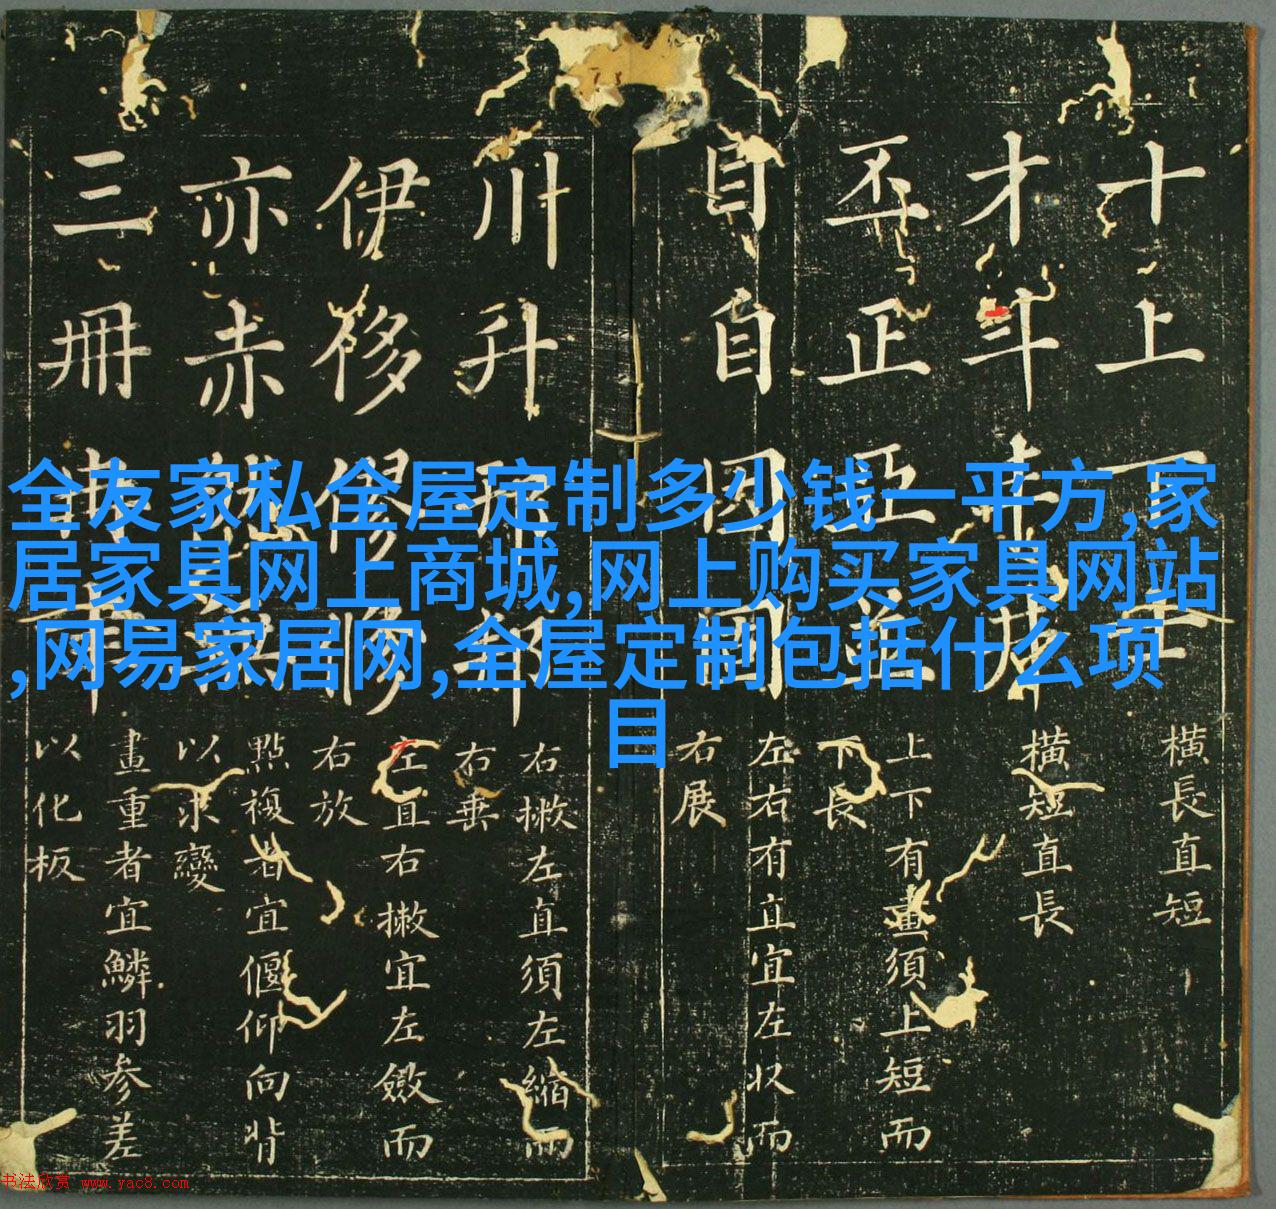 全友家私全屋定制多少钱一平方,家
居家具网上商城,网上购买家具网站
,网易家居网,全屋定制包括什么项
目
十上
橫長直短
才斗
橫短直長
丕正
上下有畫須上短而
下長
目自
左右有直宜左収而
右展
川升
右撇左直須左縮而
右垂
伊侈
左直右撇宜左斂而
右放
亦赤
點複者宜偃仰向背
以求變
三冊
畫重者宜鱗羽參差
以化板
书法欣赏 www.yac8.com